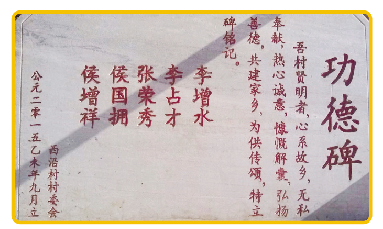 功德碑
吾村贤明者，心系故乡，无私
奉献，热心诚意，慷慨解囊，弘扬
善德。共建家乡，为供传颂，特立
碑铭记。
李增水
李占才
张荣秀
侯国拥
侯增祥
西沿村村委会
公元二零一五乙未年九月立